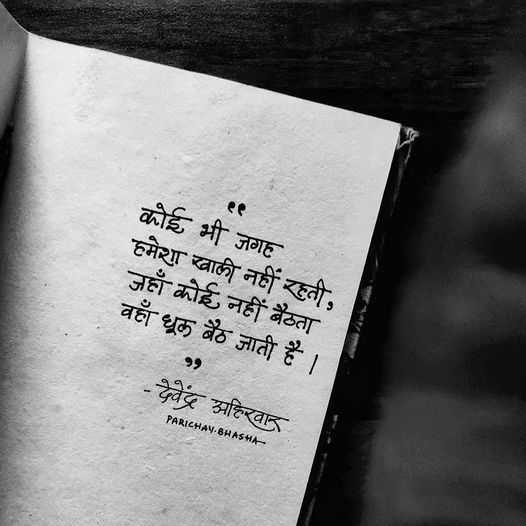 "
कोई भी जगह
हमेशा खाली नहीं रहती,
जहाँ कोई नहीं बैठता
वहाँ धूल बैठ जाती है।
"
- देवेंद्र अहिरवार
PARICHAY.BHASHA